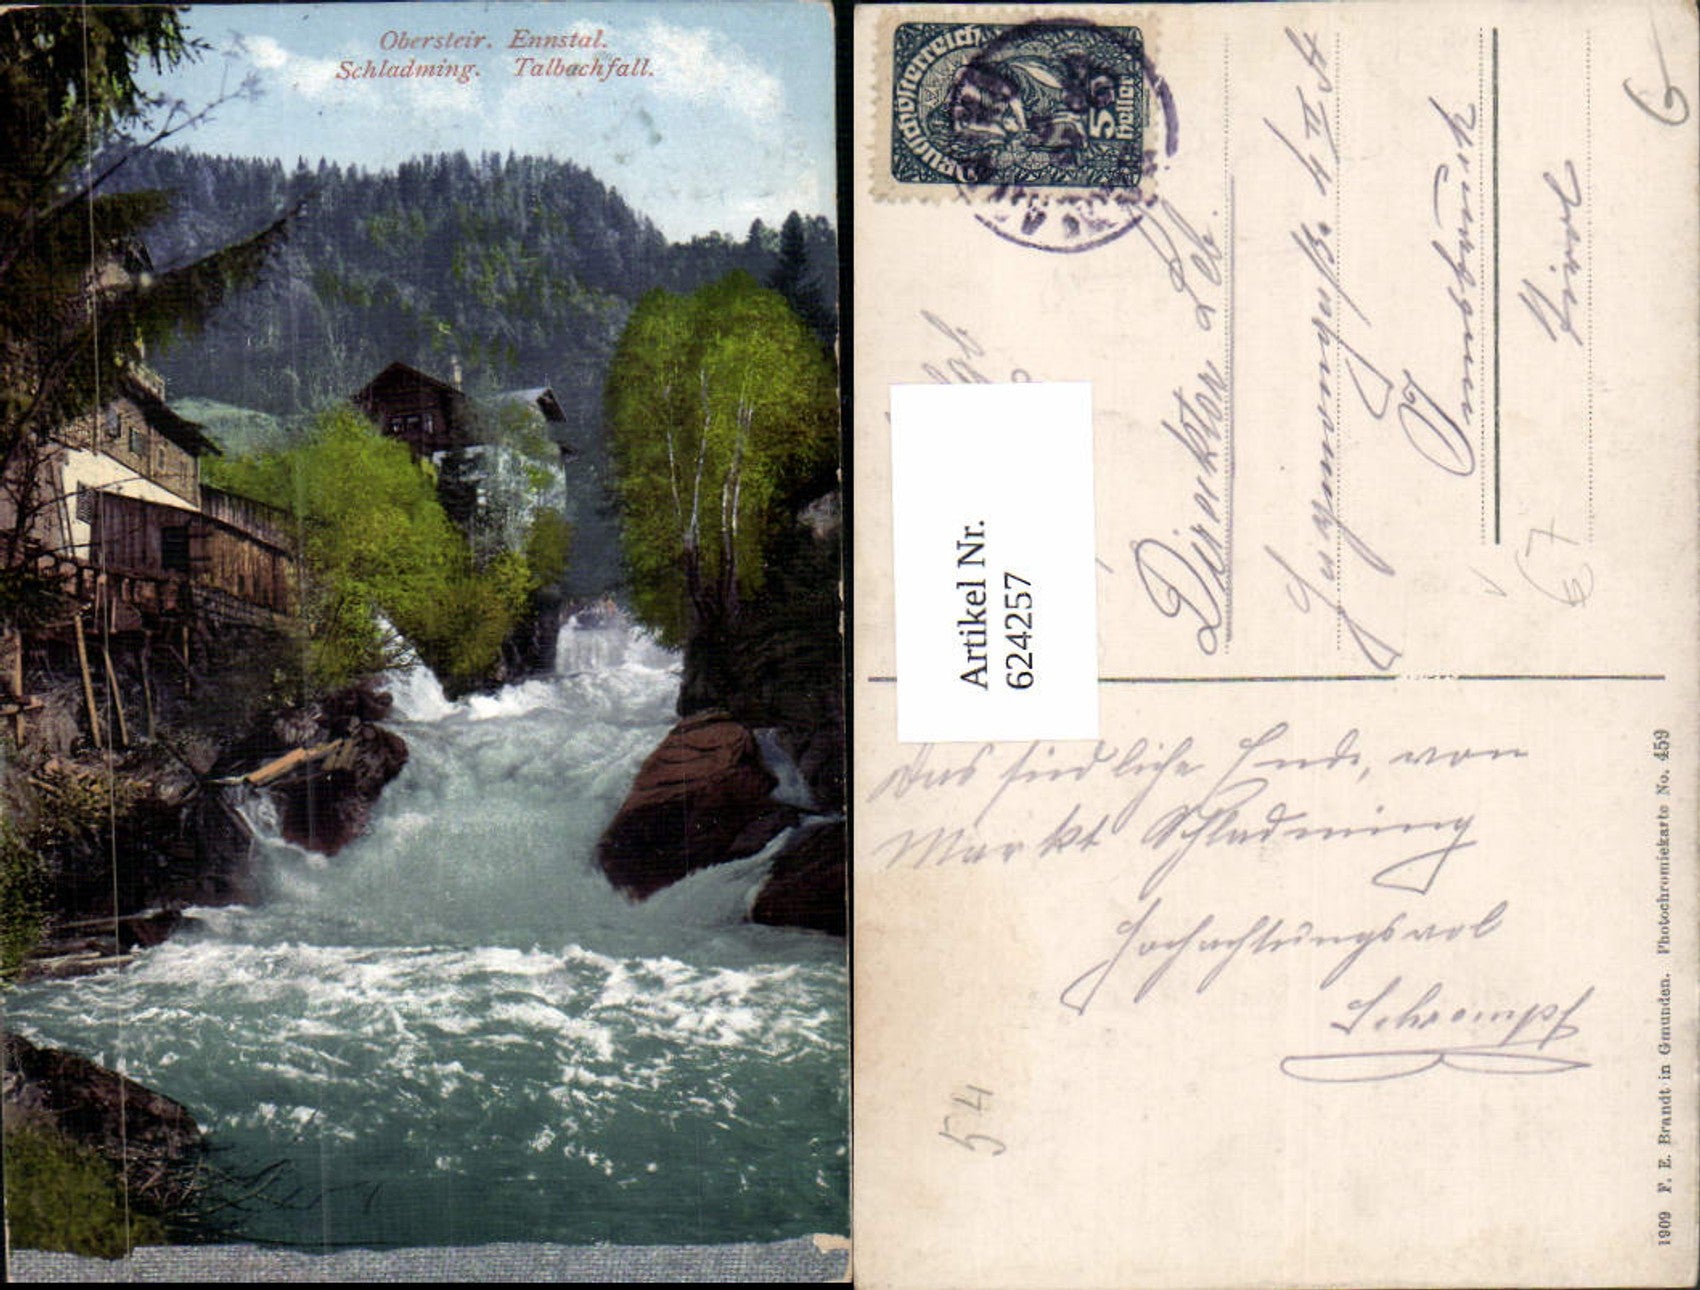 Obersteir. Ennstal.
Schladming. Talbachfall.
Deutschösterreich
5
Heller
Artikel Nr.
624257
Direktor Leb.
4 II St
Innsbruck
Tirol
6
67
Das südliche Ende, von
Markt Schladming
Hochachtungsvol
Schrempf
54
1909 F. E. Brandt in Gmunden. Photochromiekarte No. 459